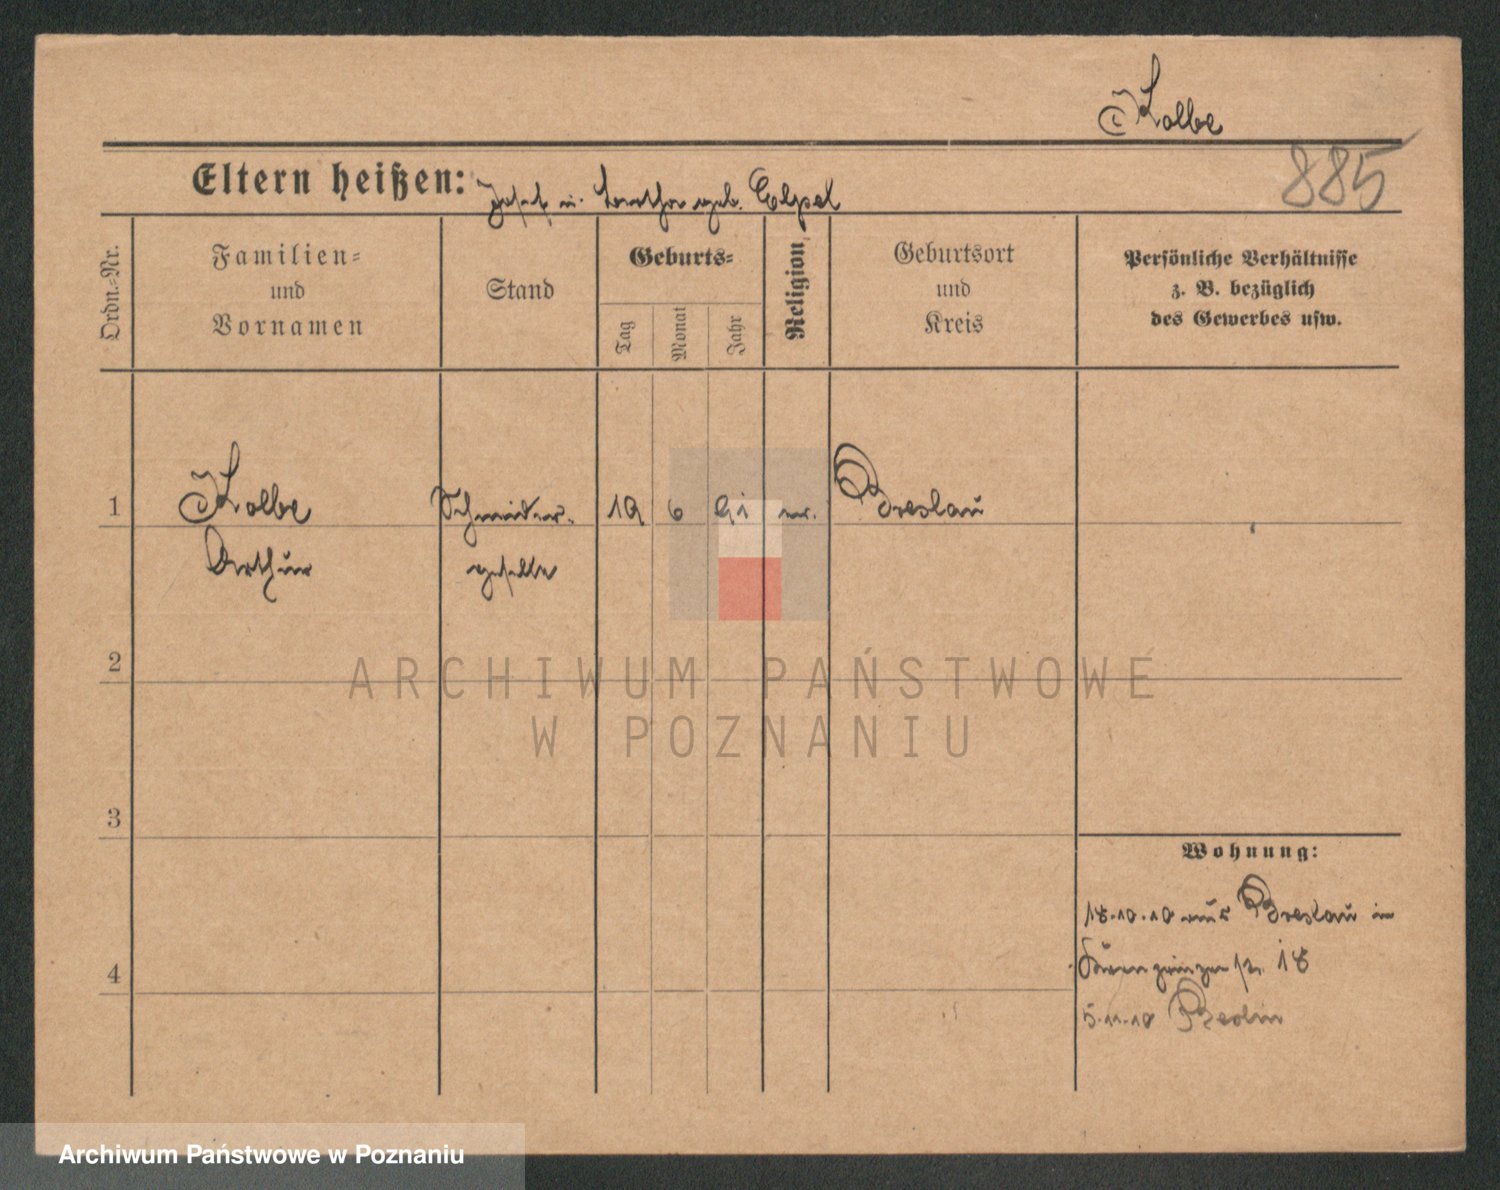 Kolbe
885
Eltern heißen: Josef u. geb.
Ordn.-Nr.
Familien-
und
Vornamen
Stand
Geburts-
Tag
Monat
Jahr
Religion
Geburtsort
und
Kreis
Persönliche Verhältnisse
z. B. bezüglich
des Gewerbes usw.
1
Kolbe
Schneider-
19
6
91
Breslau
Arthur
geselle
2
ARCHIWUM PAŃSTWOWE
W POZNANIU
3
Wohnung:
18.10.10 aus Breslau in
4
18
5.11.10 Berlin
Archiwum Państwowe w Poznaniu